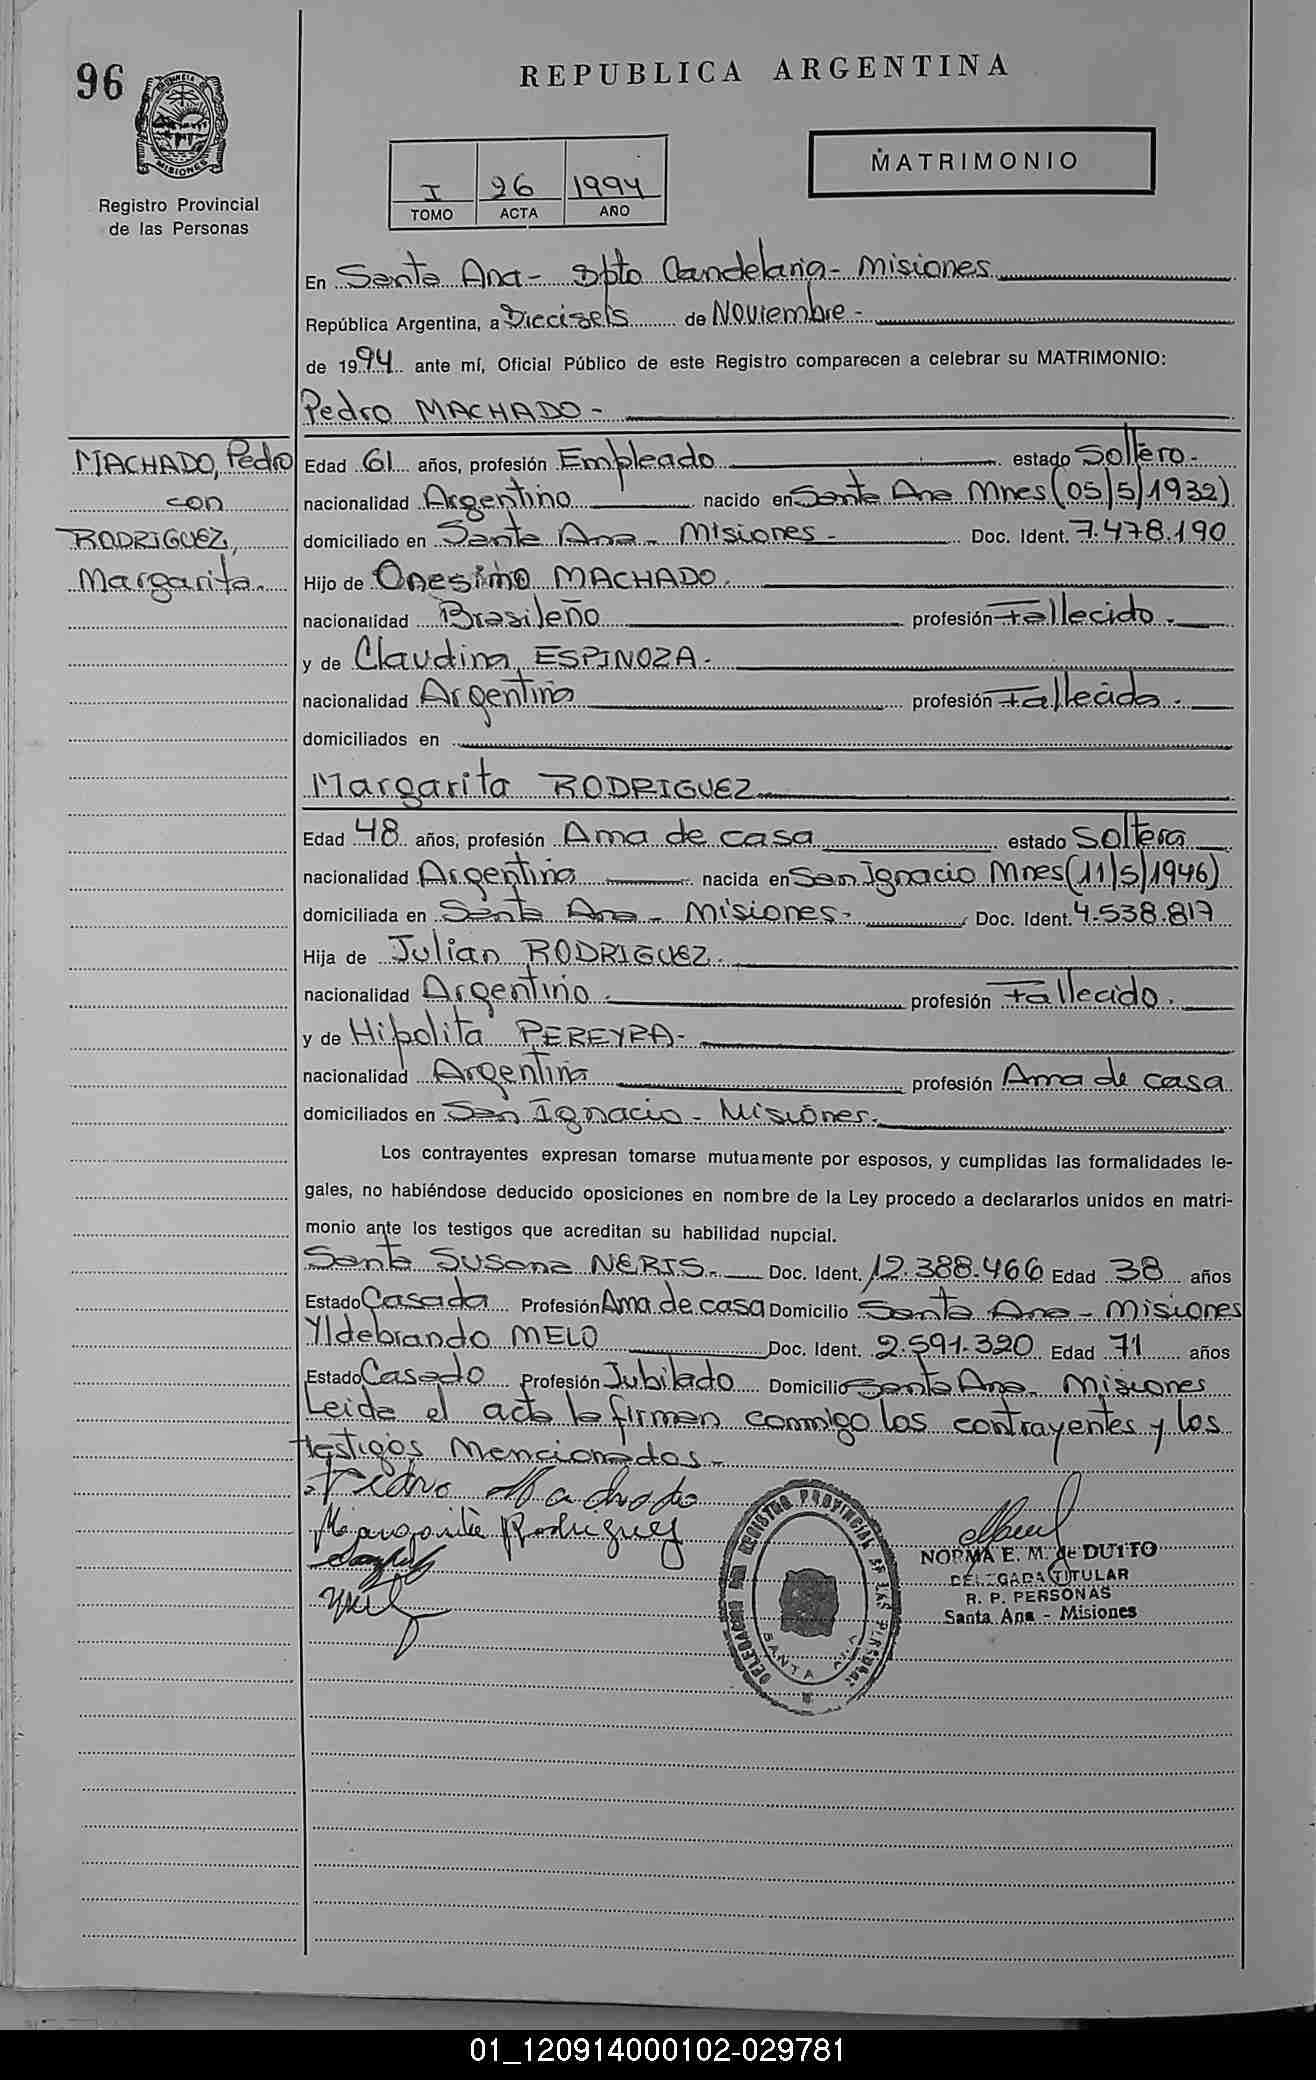 96
REPUBLICA ARGENTINA
MISIONES
Registro Provincial
de las Personas
I 96 1994
TOMO ACTA AÑO
MATRIMONIO
En Santa Ana - Dpto Candelaria - Misiones
República Argentina, a Dieciseis de Noviembre -
de 1994 ante mí, Oficial Público de este Registro comparecen a celebrar su MATRIMONIO:
Pedro MACHADO -
MACHADO, Pedro
con
RODRIGUEZ,
Margarita.
Edad 61 años, profesión Empleado estado Soltero -
nacionalidad Argentino nacido en Santa Ana Mnes (05/5/1932)
domiciliado en Santa Ana - Misiones - Doc. Ident. 7.478.190
Hijo de Onesimo MACHADO.
nacionalidad Brasileño profesión Fallecido -
y de Claudina ESPINOZA -
nacionalidad Argentina profesión Fallecida -
domiciliados en
Margarita RODRIGUEZ
Edad 48 años, profesión Ama de casa estado Soltera
nacionalidad Argentina nacida en San Ignacio Mnes (11/5/1946)
domiciliada en Santa Ana - Misiones - Doc. Ident. 4.538.817
Hija de Julian RODRIGUEZ.
nacionalidad Argentino. profesión Fallecido.
y de Hipolita PEREYRA -
nacionalidad Argentina profesión Ama de casa
domiciliados en San Ignacio - Misiones.
Los contrayentes expresan tomarse mutuamente por esposos, y cumplidas las formalidades le-
gales, no habiéndose deducido oposiciones en nombre de la Ley procedo a declararlos unidos en matri-
monio ante los testigos que acreditan su habilidad nupcial.
Santa Susana NERIS. Doc. Ident. 12.388.466 Edad 38 años
Estado Casada Profesión Ama de casa Domicilio Santa Ana - Misiones
Yldebrando MELO Doc. Ident. 2.591.320 Edad 71 años
Estado Casado Profesión Jubilado Domicilio Santa Ana - Misiones
Leida el acta la firman conmigo los contrayentes y los
testigos mencionados -
Pedro Machado
Margarita Rodriguez
DELEGACION DEL REGISTRO PROVINCIAL DE LAS PERSONAS
SANTA ANA
NORMA E. M. de DUTTO
DELEGADA TITULAR
R. P. PERSONAS
Santa Ana - Misiones
01_120914000102-029781